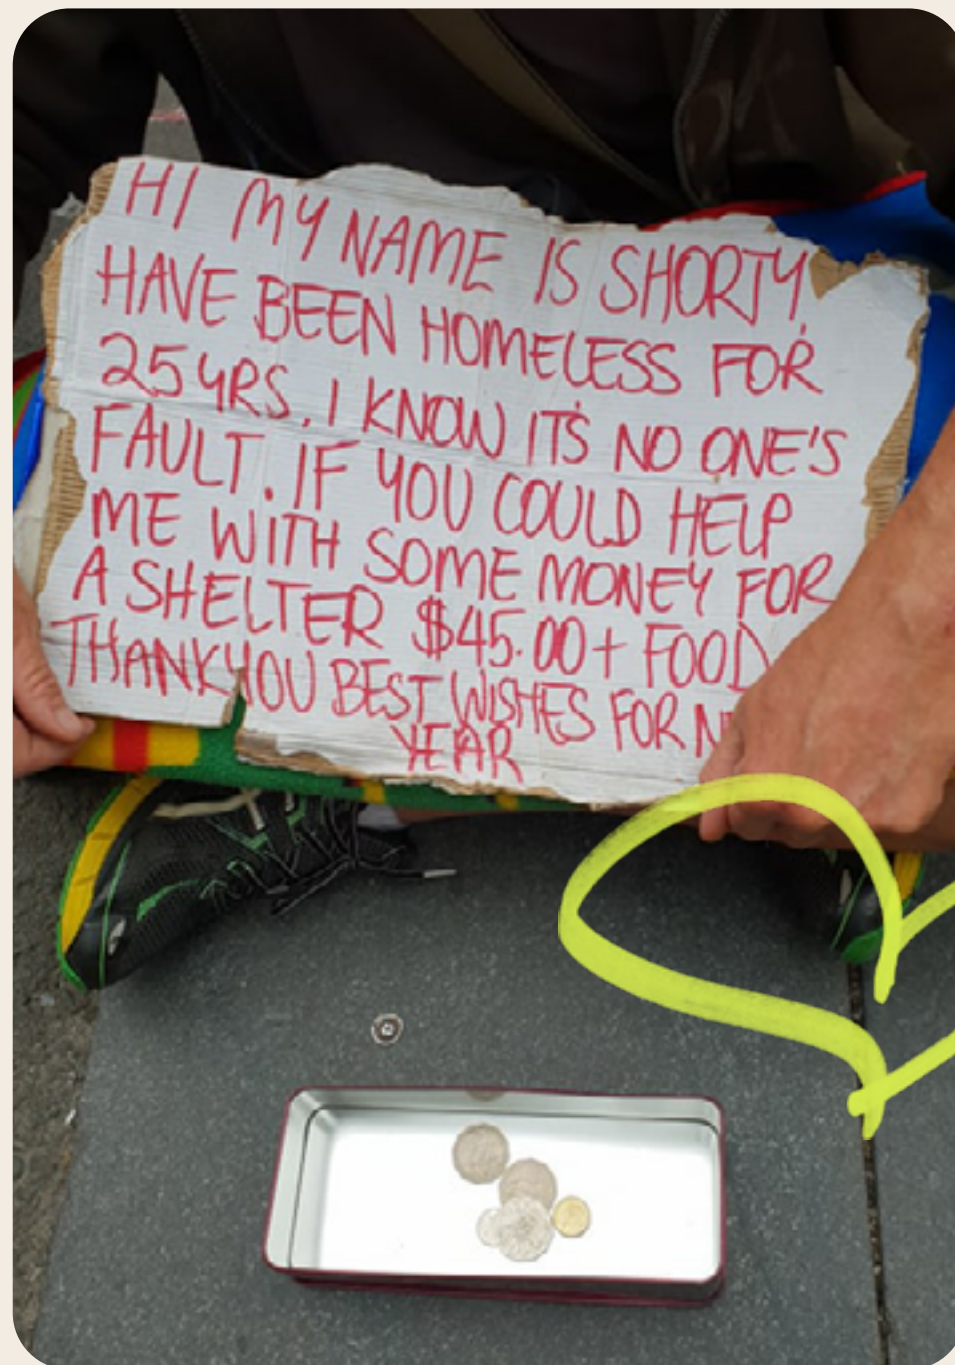 HI MY NAME IS SHORTY,
HAVE BEEN HOMELESS FOR
25 YRS. I KNOW IT'S NO ONE'S
FAULT. IF YOU COULD HELP
ME WITH SOME MONEY FOR
A SHELTER $45.00+ FOOD
THANKYOU BEST WISHES FOR
YEAR